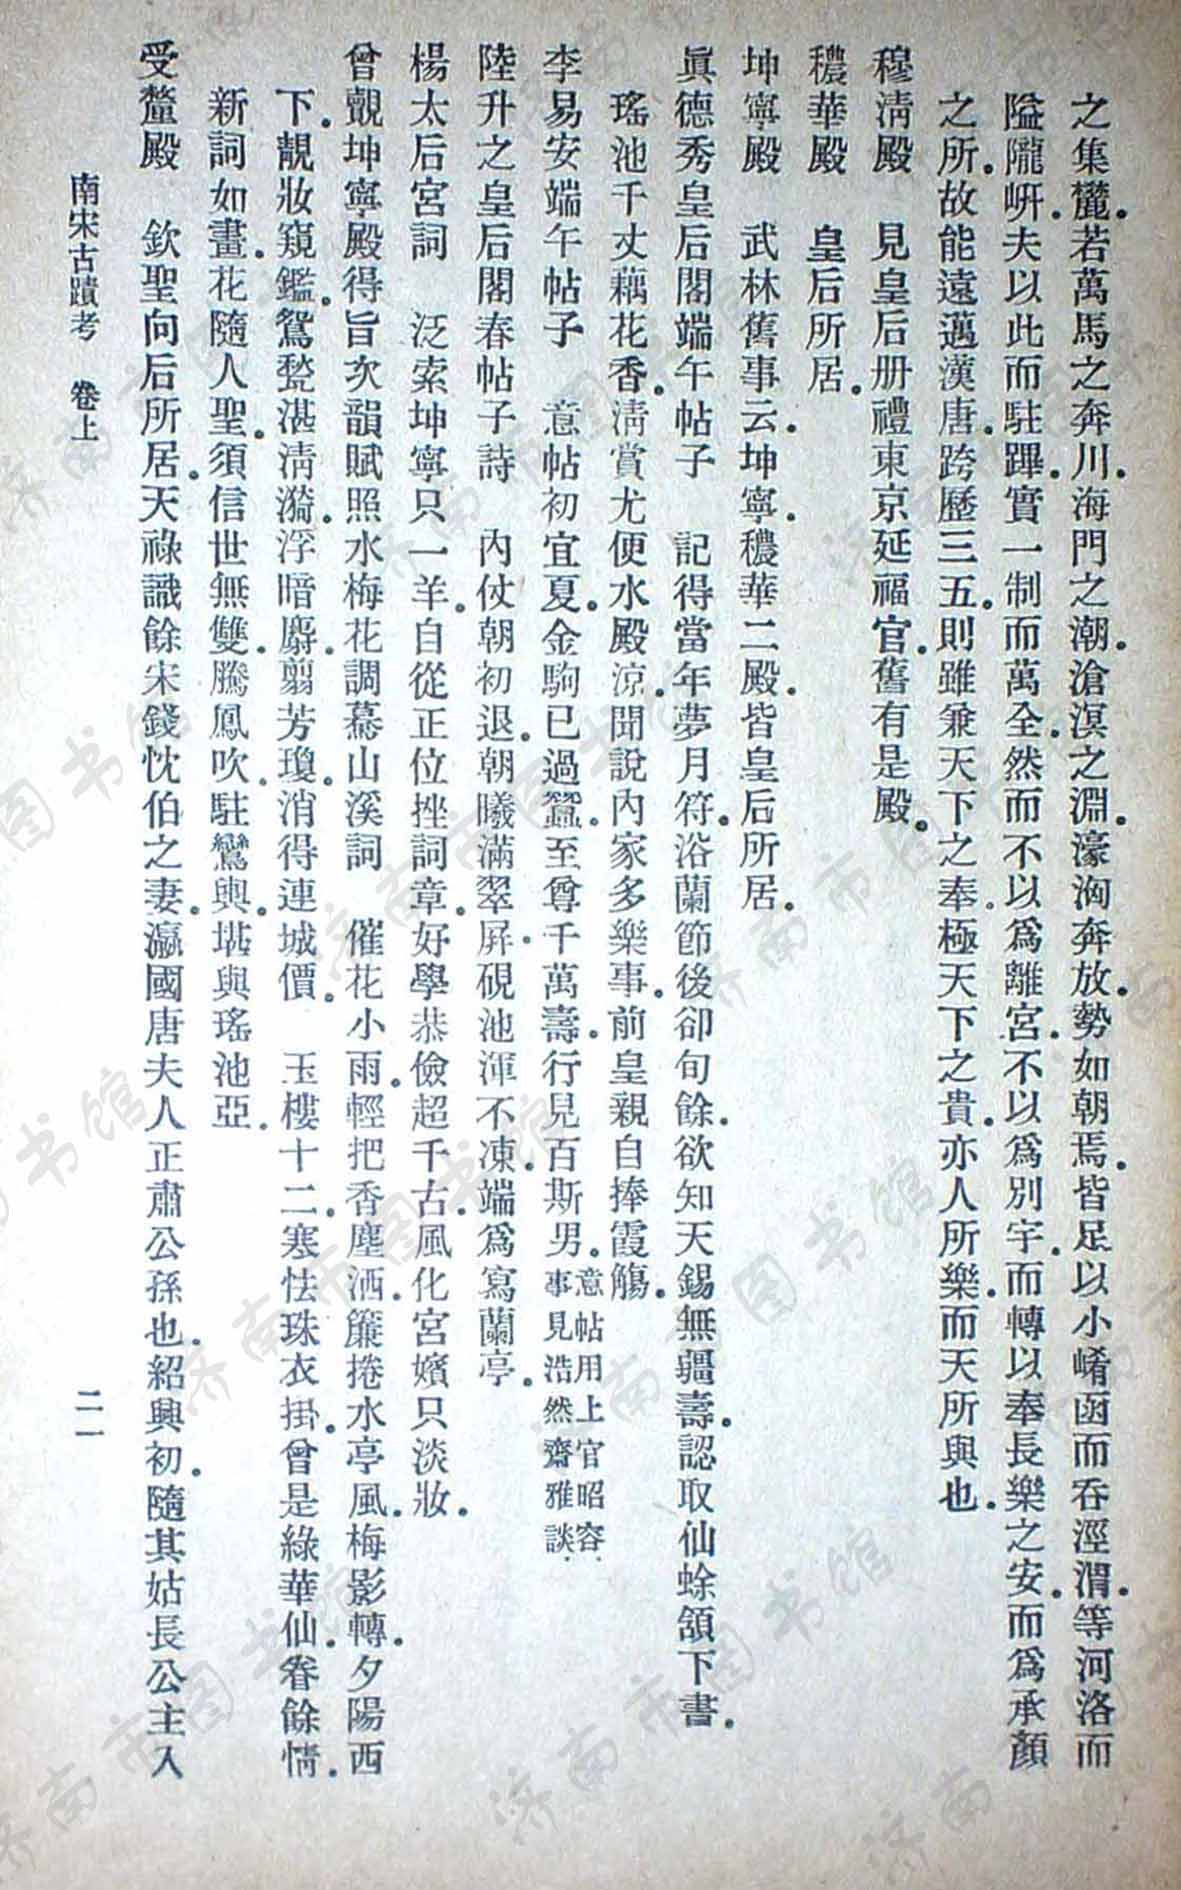 之集麓。若萬馬之奔川。海門之潮。滄溟之淵。濠洶奔放。勢如朝焉。皆足以小崤函而吞涇渭。等河洛而
隘隴岍。夫以此而駐蹕。實一制而萬全。然而不以爲離宮。不以爲別宇。而轉以奉長樂之安。而爲承顏
之所。故能遠邁漢唐。跨歷三五。則雖兼天下之奉。極天下之貴。亦人所樂。而天所與也。
穆淸殿　見皇后册禮東京延福官。舊有是殿。
穠華殿　皇后所居。
坤寧殿　武林舊事云。坤寧。穠華二殿。皆皇后所居。
眞德秀皇后閣端午帖子　記得當年夢月符。浴蘭節後卻旬餘。欲知天錫無疆壽。認取仙蜍頷下書。
瑤池千丈藕花香。淸賞尤便水殿涼。聞說內家多樂事。前皇親自捧霞觴。
李易安端午帖子　意帖初宜夏。金駒已過蠶。至尊千萬壽。行見百斯男。意帖用上官昭容。事見浩然齋雅談。
陸升之皇后閣春帖子詩　內仗朝初退。朝曦滿翠屏。硯池渾不凍。端爲寫蘭亭。
楊太后宮詞　泛索坤寧只一羊。自從正位挫詞章。好學恭儉超千古。風化宮嬪只淡妝。
曾覿坤寧殿得旨次韻賦照水梅花調驀山溪詞　催花小雨。輕把香塵洒。簾捲水亭風。梅影轉。夕陽西
下。靚妝窺鑑。鴛甃湛淸漪。浮暗麝。翦芳瓊。消得連城價。　玉樓十二。寒怯珠衣掛。曾是綠華仙。眷餘情。
新詞如畫。花隨人聖。須信世無雙。騰鳳吹。駐鸞輿。堪與瑤池亞。
受釐殿　欽聖向后所居。天祿識餘宋錢忱伯之妻。瀛國唐夫人正肅公孫也。紹興初。隨其姑長公主入
南宋古蹟考　卷上
二一
济南市图书馆